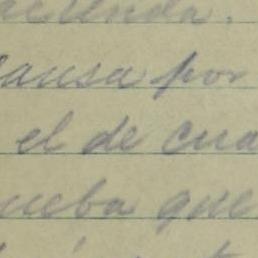 acienda.
causa por
el de cua
ueba que